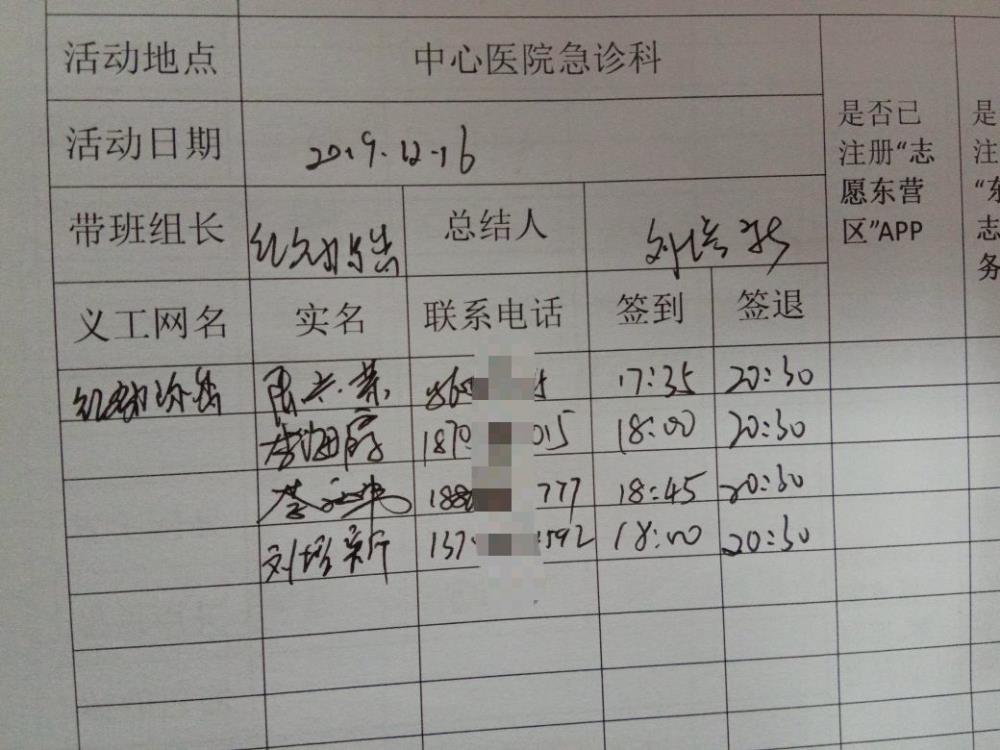 活动地点 中心医院急诊科
是否已 是
活动日期 2019.12.16
注册“志 注
愿东营 “东
带班组长 总结人 刘培新
区”APP 志
务
义工网名 实名 联系电话 签到 签退
17:35 20:30
李海 187 015 18:00 20:30
188 777 18:45 20:30
刘培新 137 592 18:00 20:30